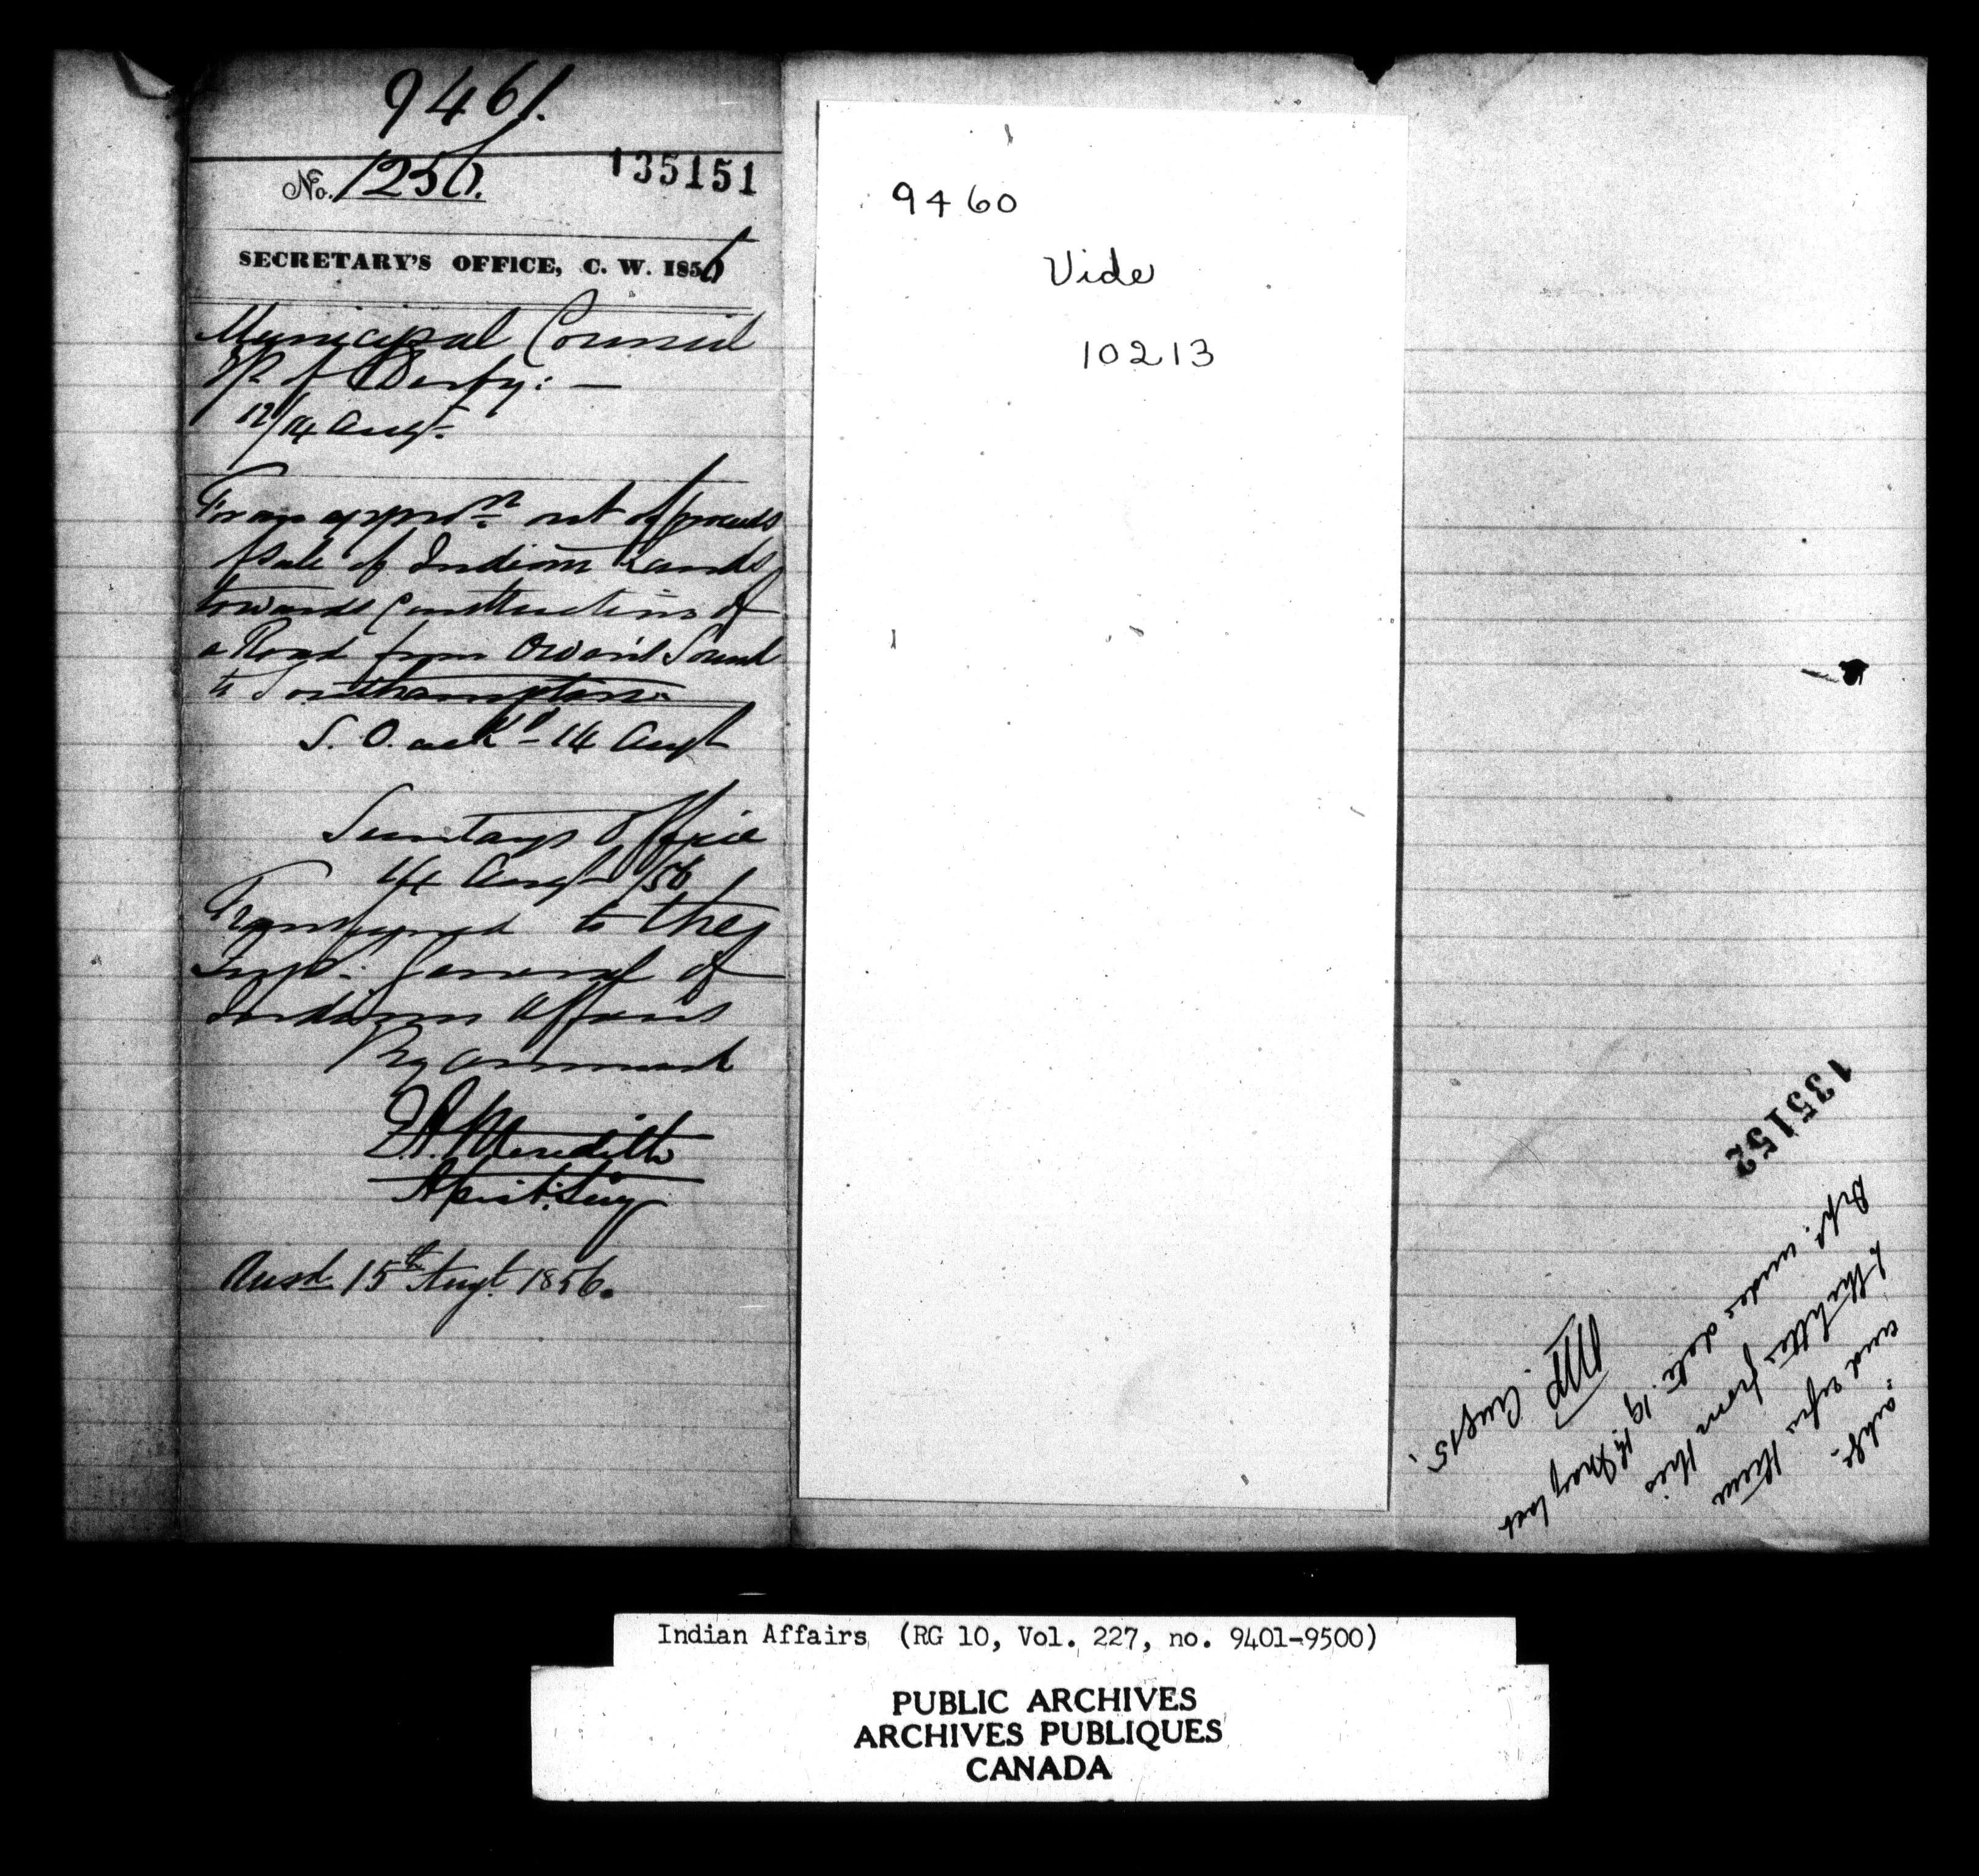 9461.
No. 1256.
135151
SECRETARY'S OFFICE, C. W. 1856
Municipal Council
Tp. of Derby: —
12/14 Augt.
For an appron. out of proceeds
of sale of Indian Lands,
towards Construction of
a Road from Owen's Sound
to Southampton.
S. O. ackd. 14 Augt
Secretary's Office
14 Augt /56
Transferred to the
Supt. General of
Indian Affairs
By Command
E. A. Meredith
Assist. Secy
Ansd. 15th Augt. 1856.
9460
Vide
10213
135152
ackn.
and refer them
to the letter from this
Dept. under date 19th May last
Aug 15.
Indian Affairs (RG 10, Vol. 227, no. 9401-9500)
PUBLIC ARCHIVES
ARCHIVES PUBLIQUES
CANADA